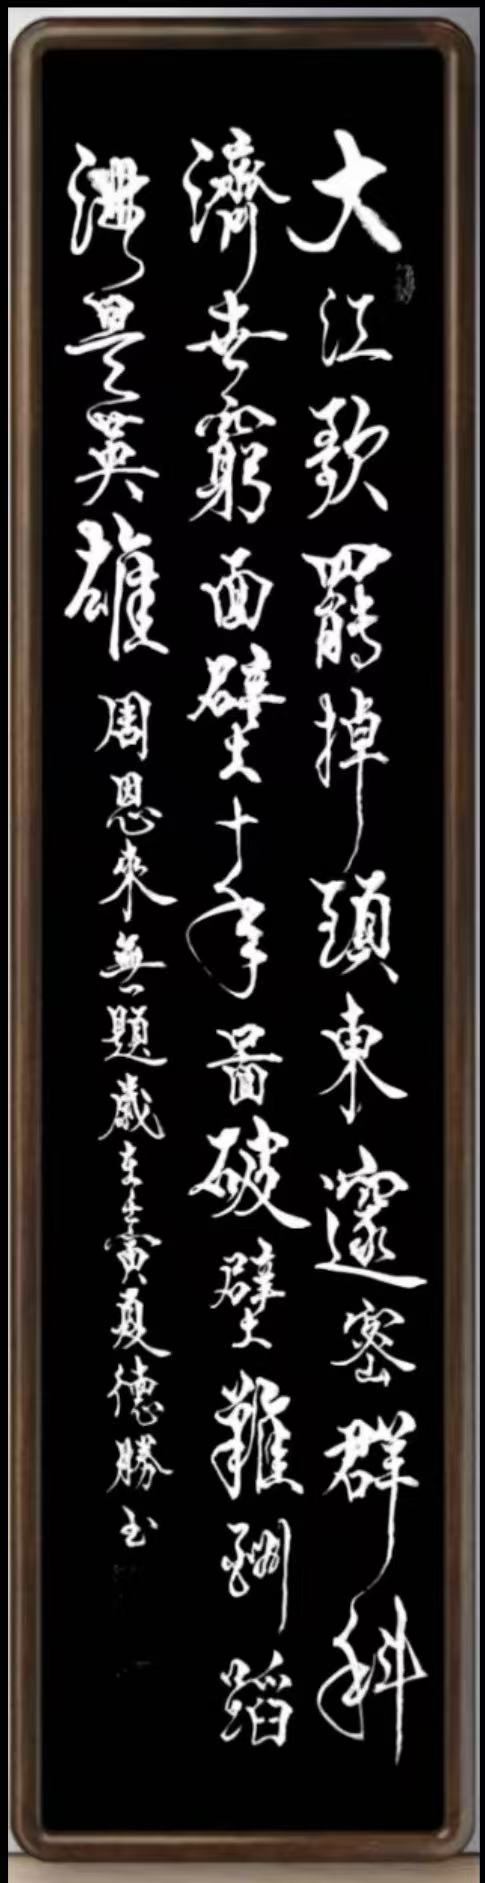 大江歌罷掉頭東邃密群科
濟世窮面壁十年圖破壁難酬蹈
海是英雄 周恩來無題歲在壬寅夏德勝书